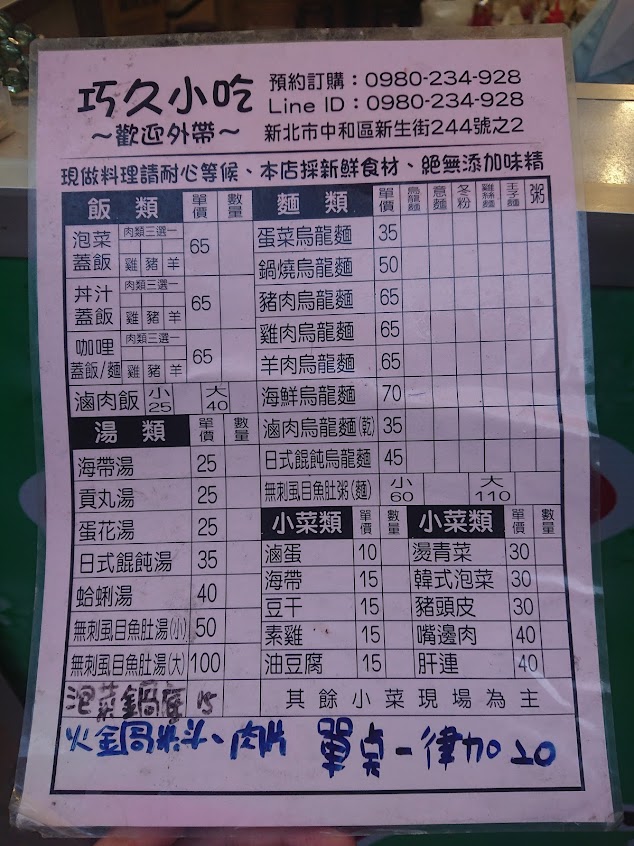 巧久小吃
～歡迎外帶～
預約訂購：0980-234-928
Line ID：0980-234-928
新北市中和區新生街244號之2
現做料理請耐心等候、本店採新鮮食材、絕無添加味精
飯 類 單價 數量
泡菜蓋飯 肉類三選一 雞 豬 羊 65
丼汁蓋飯 肉類三選一 雞 豬 羊 65
咖哩蓋飯/麵 肉類三選一 雞 豬 羊 65
滷肉飯 小25 大40
湯 類 單價 數量
海帶湯 25
貢丸湯 25
蛋花湯 25
日式餛飩湯 35
蛤蜊湯 40
無刺虱目魚肚湯(小) 50
無刺虱目魚肚湯(大) 100
麵 類 單價 烏龍麵 意麵 冬粉 雞絲麵 王子麵 粥
蛋菜烏龍麵 35
鍋燒烏龍麵 50
豬肉烏龍麵 65
雞肉烏龍麵 65
羊肉烏龍麵 65
海鮮烏龍麵 70
滷肉烏龍麵(乾) 35
日式餛飩烏龍麵 45
無刺虱目魚肚粥(麵) 小60 大110
小菜類 單價 數量
滷蛋 10
海帶 15
豆干 15
素雞 15
油豆腐 15
小菜類 單價 數量
燙青菜 30
韓式泡菜 30
豬頭皮 30
嘴邊肉 40
肝連 40
其餘小菜現場為主
泡菜鍋底 15
肉片 單点一律加20